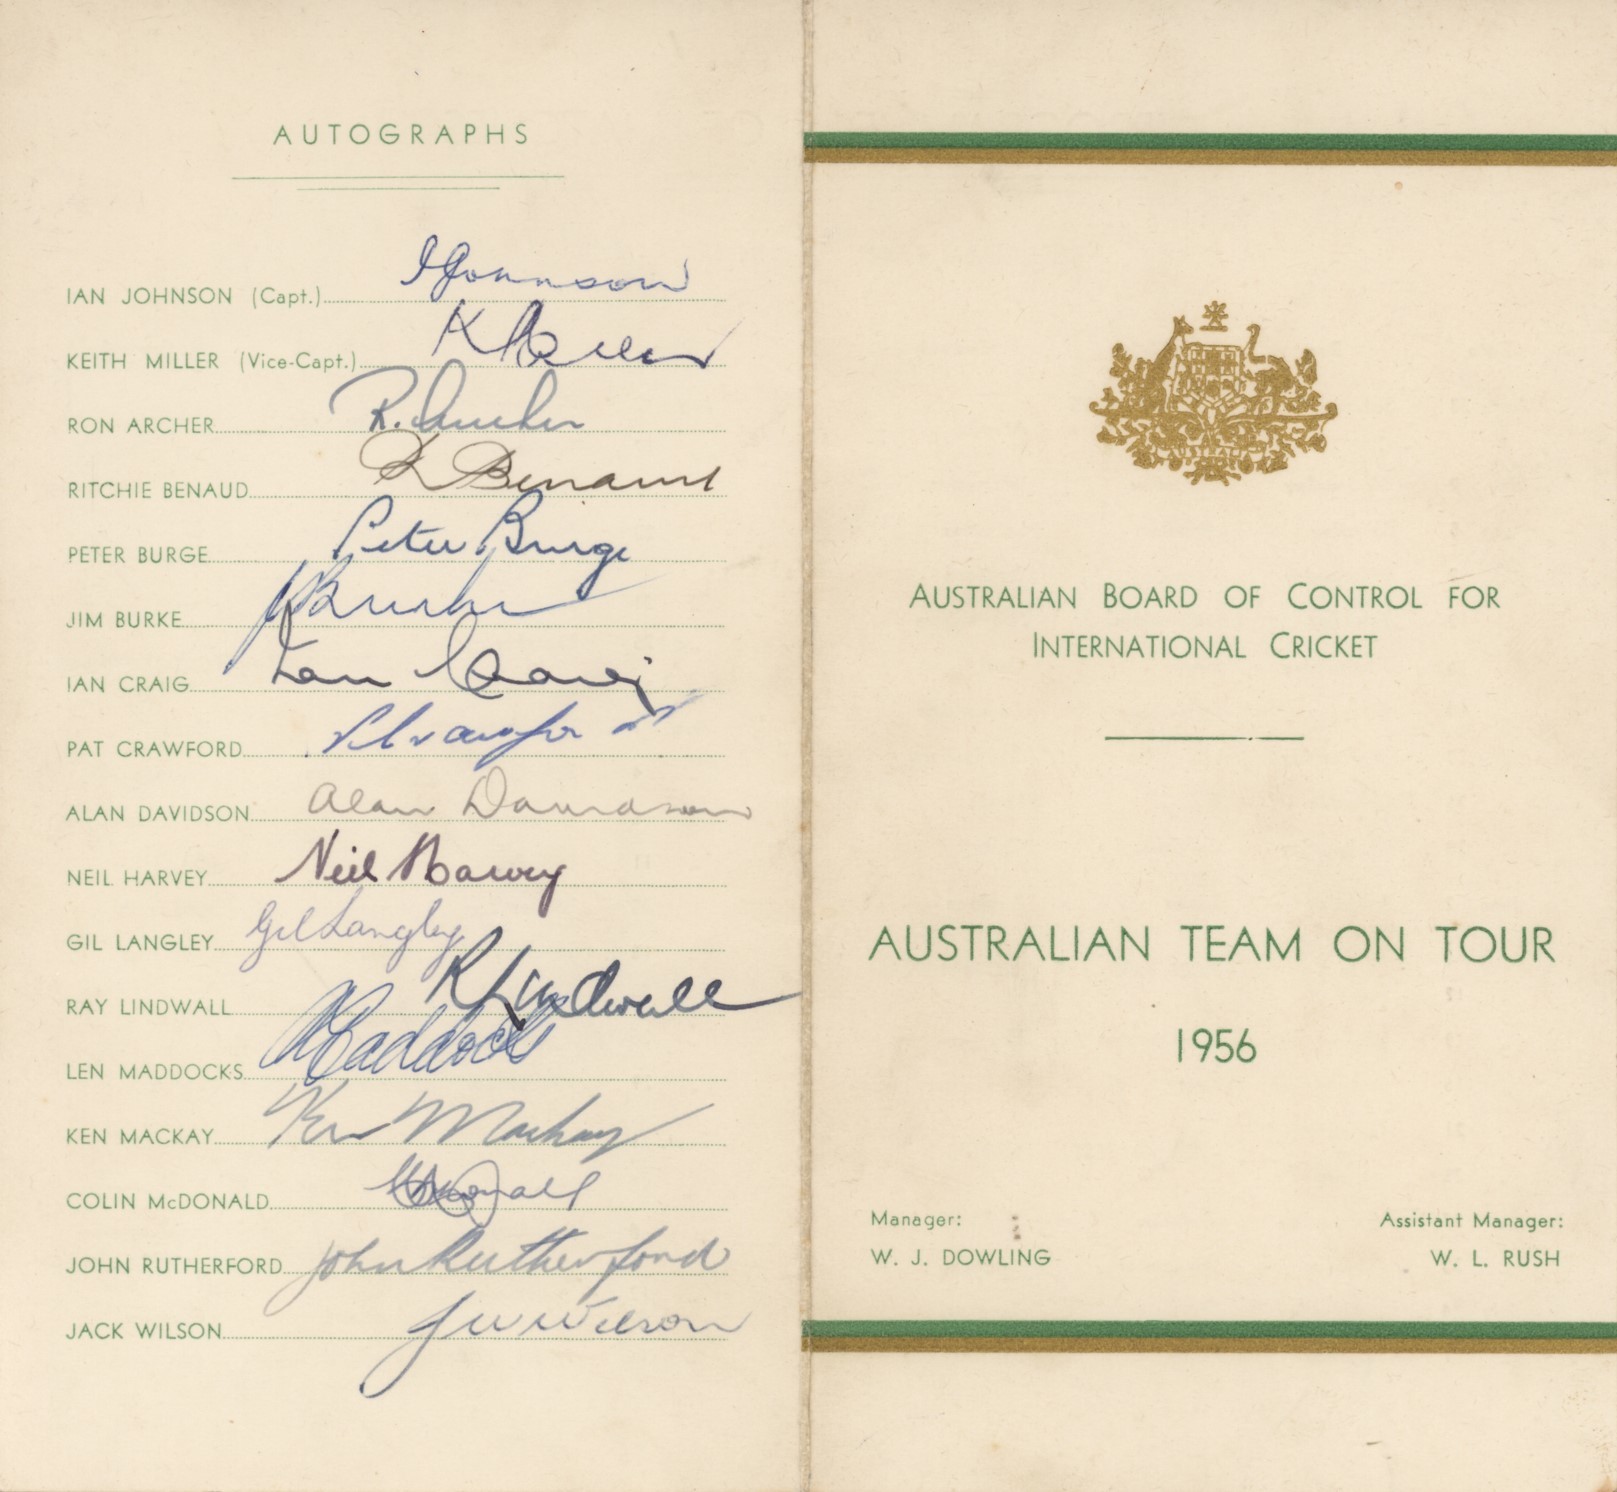 AUTOGRAPHS
IAN JOHNSON (Capt.) IJohnson
KEITH MILLER (Vice-Capt.) K Miller
RON ARCHER R. Archer
RITCHIE BENAUD R Benaud
PETER BURGE Peter Burge
JIM BURKE JBurke
IAN CRAIG Ian Craig
PAT CRAWFORD P Crawford
ALAN DAVIDSON Alan Davidson
NEIL HARVEY Neil Harvey
GIL LANGLEY Gil Langley
RAY LINDWALL R Lindwall
LEN MADDOCKS Maddocks
KEN MACKAY Ken Mackay
COLIN McDONALD
JOHN RUTHERFORD John Rutherford
JACK WILSON J W Wilson
AUSTRALIA
AUSTRALIAN BOARD OF CONTROL FOR
INTERNATIONAL CRICKET
AUSTRALIAN TEAM ON TOUR
1956
Manager:
W. J. DOWLING
Assistant Manager:
W. L. RUSH